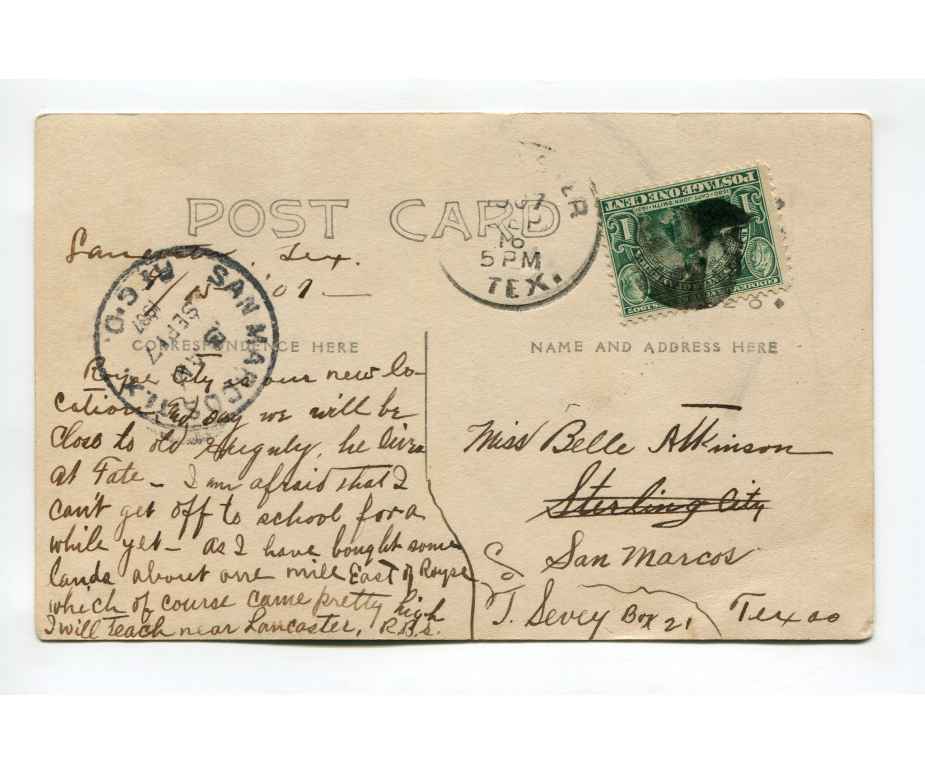 POST CARD
Tex.
07
CORRESPONDENCE HERE
Royse City is our new lo-
cation and say we will be
close to old he lives
at Fate - I am afraid that I
can't get off to school for a
while yet - as I have bought some
lands about one mile East of Royse
which of course came pretty high
I will teach near Lancaster, R.B.S.
SAN MARCOS
REC'D.
SEP 17
1907
5 PM
TEX.
POSTAGE ONE CENT
1580 CAPT. JOHN SMITH 1631
1 1
NAME AND ADDRESS HERE
Miss Belle Atkinson
Sterling City
San Marcos
T. Sevey Box 21 Texas